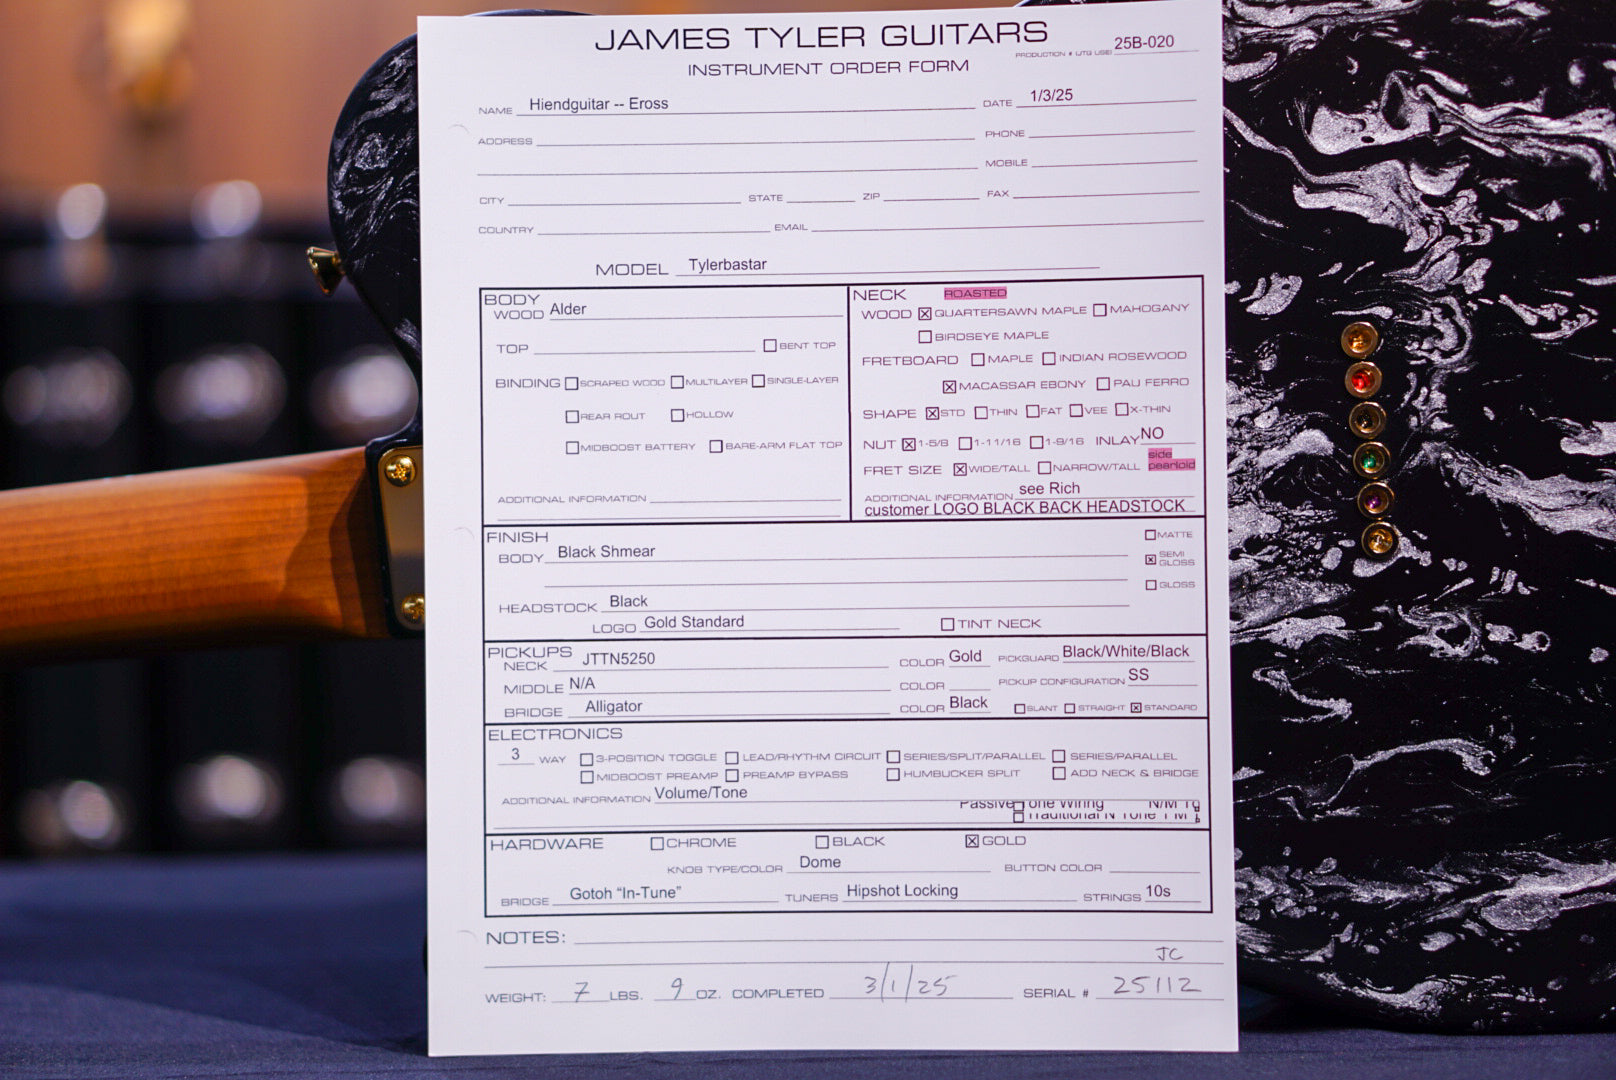 JAMES TYLER GUITARS
PRODUCTION # (JTG USE) 25B-020
INSTRUMENT ORDER FORM
NAME Hiendguitar -- Eross DATE 1/3/25
ADDRESS PHONE
MOBILE
CITY STATE ZIP FAX
COUNTRY EMAIL
MODEL Tylerbastar
BODY
WOOD Alder
TOP BENT TOP
BINDING SCRAPED WOOD MULTILAYER SINGLE-LAYER
REAR ROUT HOLLOW
MIDBOOST BATTERY BARE-ARM FLAT TOP
ADDITIONAL INFORMATION
NECK ROASTED
WOOD ☒ QUARTERSAWN MAPLE MAHOGANY
BIRDSEYE MAPLE
FRETBOARD MAPLE INDIAN ROSEWOOD
☒ MACASSAR EBONY PAU FERRO
SHAPE ☒ STD THIN FAT VEE X-THIN
NUT ☒ 1-5/8 1-11/16 1-9/16 INLAY NO
side
FRET SIZE ☒ WIDE/TALL NARROW/TALL pearloid
ADDITIONAL INFORMATION see Rich
customer LOGO BLACK BACK HEADSTOCK
FINISH
MATTE
BODY Black Shmear ☒ SEMI GLOSS
GLOSS
HEADSTOCK Black
LOGO Gold Standard TINT NECK
PICKUPS
NECK JTTN5250 COLOR Gold PICKGUARD Black/White/Black
MIDDLE N/A COLOR PICKUP CONFIGURATION SS
BRIDGE Alligator COLOR Black SLANT STRAIGHT ☒ STANDARD
ELECTRONICS
3 WAY 3-POSITION TOGGLE LEAD/RHYTHM CIRCUIT SERIES/SPLIT/PARALLEL SERIES/PARALLEL
MIDBOOST PREAMP PREAMP BYPASS HUMBUCKER SPLIT ADD NECK & BRIDGE
ADDITIONAL INFORMATION Volume/Tone
Passive Tone Wiring
Traditional
HARDWARE CHROME BLACK ☒ GOLD
KNOB TYPE/COLOR Dome BUTTON COLOR
BRIDGE Gotoh “In-Tune” TUNERS Hipshot Locking STRINGS 10s
NOTES:
JC
WEIGHT: 7 LBS. 9 OZ. COMPLETED 3/1/25 SERIAL # 25112